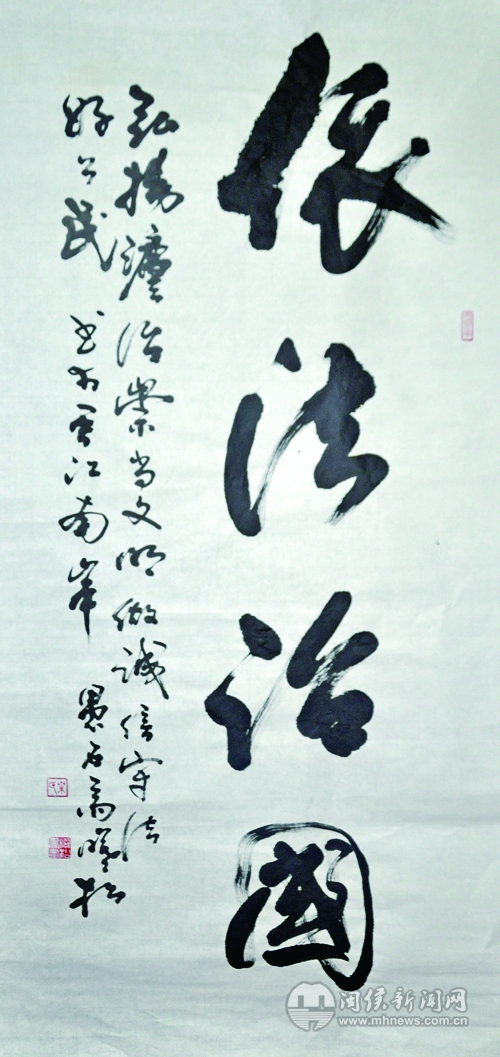 依法治國
弘揚灋治崇尚文明做誠信守法
好公民 书於江南岸 墨石
闽侯新闻网
www.mhnews.com.cn